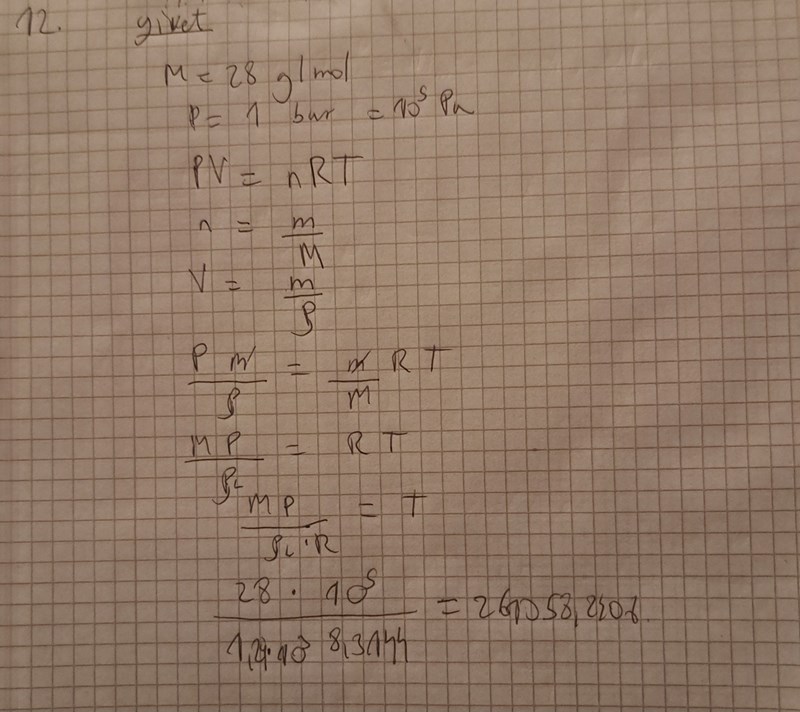 12. givet
M = 28 g/mol
P = 1 bar = 10⁵ Pa
PV = nRT
n = m/M
V = m/ρ
P m/ρ = m/M R T
M P/ρL = R T
M P/ρL · R = T
28 · 10⁵/1,29·10³ 8,3144 =